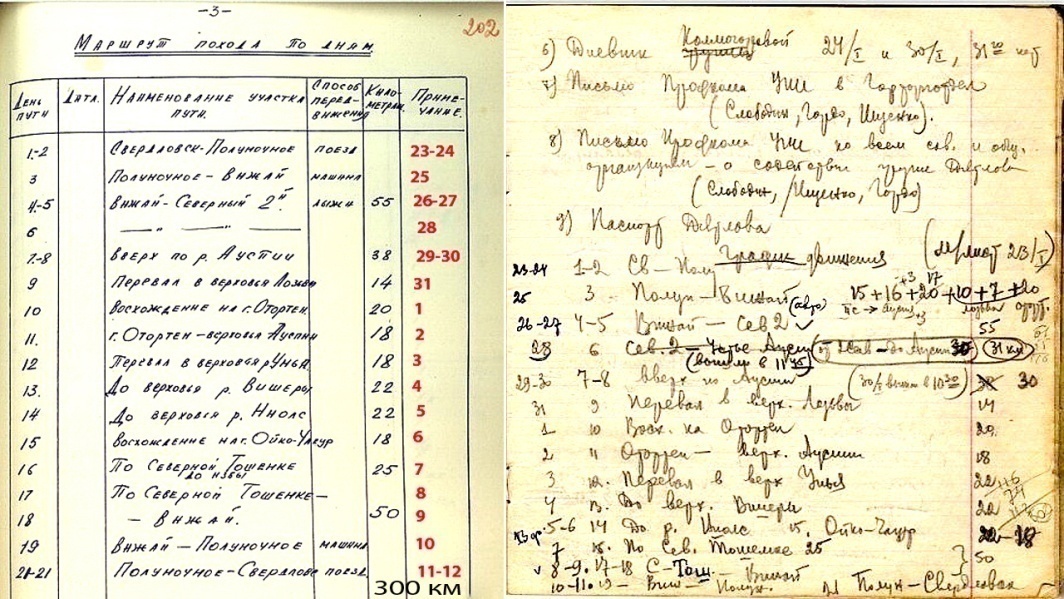 -3-
202
Маршрут похода по дням
День пути Дата. Наименование участка пути. Способ передвижения Километраж Примечание.
1-2 Свердловск-Полуночное поезд 23-24
3 Полуночное-Вижай машина 25
4-5 Вижай-Северный 2й. лыжи 55 26-27
6 —„— —„— —— 28
7-8 Вверх по р. Ауспии 38 29-30
9 Перевал в верховья Лозьвы 14 31
10 Восхождение на г. Отортен 20 1
11 г. Отортен-верховья Ауспии 18 2
12 Перевал в верховья р Унья 18 3
13. До верховья р. Вишеры 22 4
14 До верховья р. Ниолс 22 5
15 Восхождение на г. Ойко-Чакур 18 6
16 По Северной Тошенке 25 7
до избы
17 По Северной Тошенке- 8
18 - Вижай. 50 9
19 Вижай-Полуночное машина 10
20-21 Полуночное-Свердловск поезд 11-12
300 км
6) Дневник Колмогоровой группы 24/I и 30/I, 31
7) Письмо Профкома УПИ в
(Слободин, Гордо, Ищенко).
8) Письмо Профкома УПИ ко всем сов. и общ.
организациям - о содействии группе Дятлова
(Слободин, Ищенко, Гордо)
9) Паспорт Дятлова
График движения
23-24 1-2 Св-Полу
25 3 Полун-Вижай (авто) 15+16+20+10+7+20
26-27 4-5 Вижай-Сев 2 55
28 6 Сев. 2-Устье Ауспии 30 31 км
(вышли в 11 45)
29-30 7-8 вверх по Ауспии (30/I вышли в 10 30) 38 30
31 9. Перевал в верх. Лозьвы 14
1 10 Восх. на Отортен 20
2 11 Отортен - верх. Ауспии 18
3 12. Перевал в верх Унья 22
4 13. До верх. Вишеры 22
5-6 14 До р. Ниолс 15. Ойко-Чакур 22-18
7 16. По Сев. Тошемке 25
8-9. 17-18 С-Тош. - Вижай 50
10-11. 19- Виж- Полун. 21 Полун-Свердловск